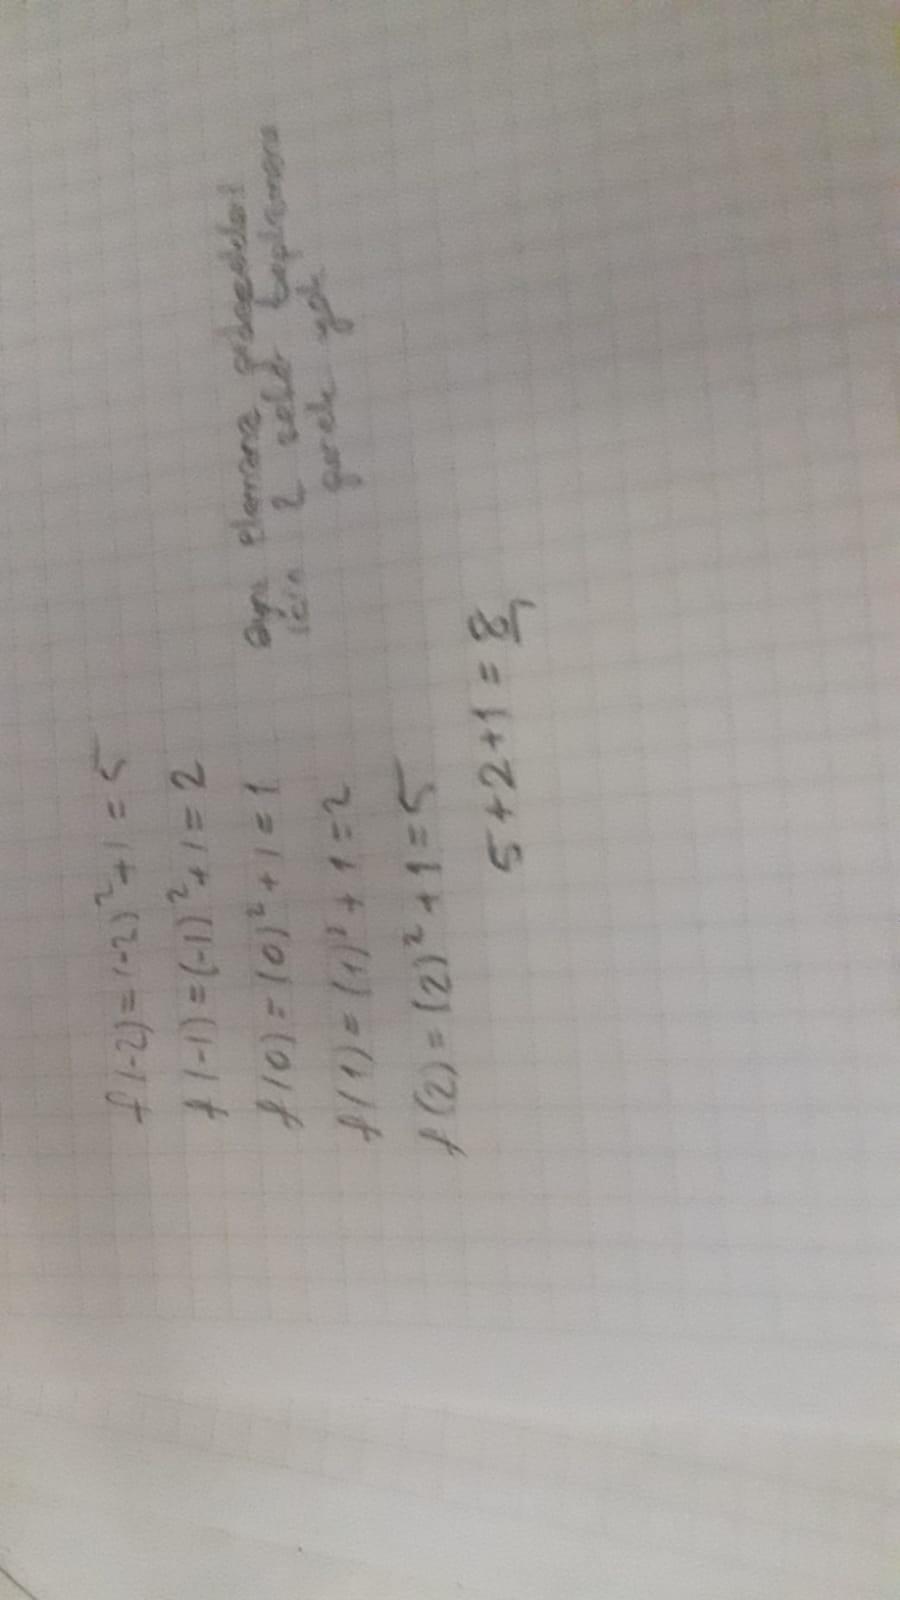 f(-2) = (-2)² + 1 = 5
f(-1) = (-1)² + 1 = 2
f(0) = (0)² + 1 = 1
f(1) = (1)² + 1 = 2
f(2) = (2)² + 1 = 5
aynı elemana gidecekleri
için 2 kez toplamana
gerek yok
5 + 2 + 1 = 8